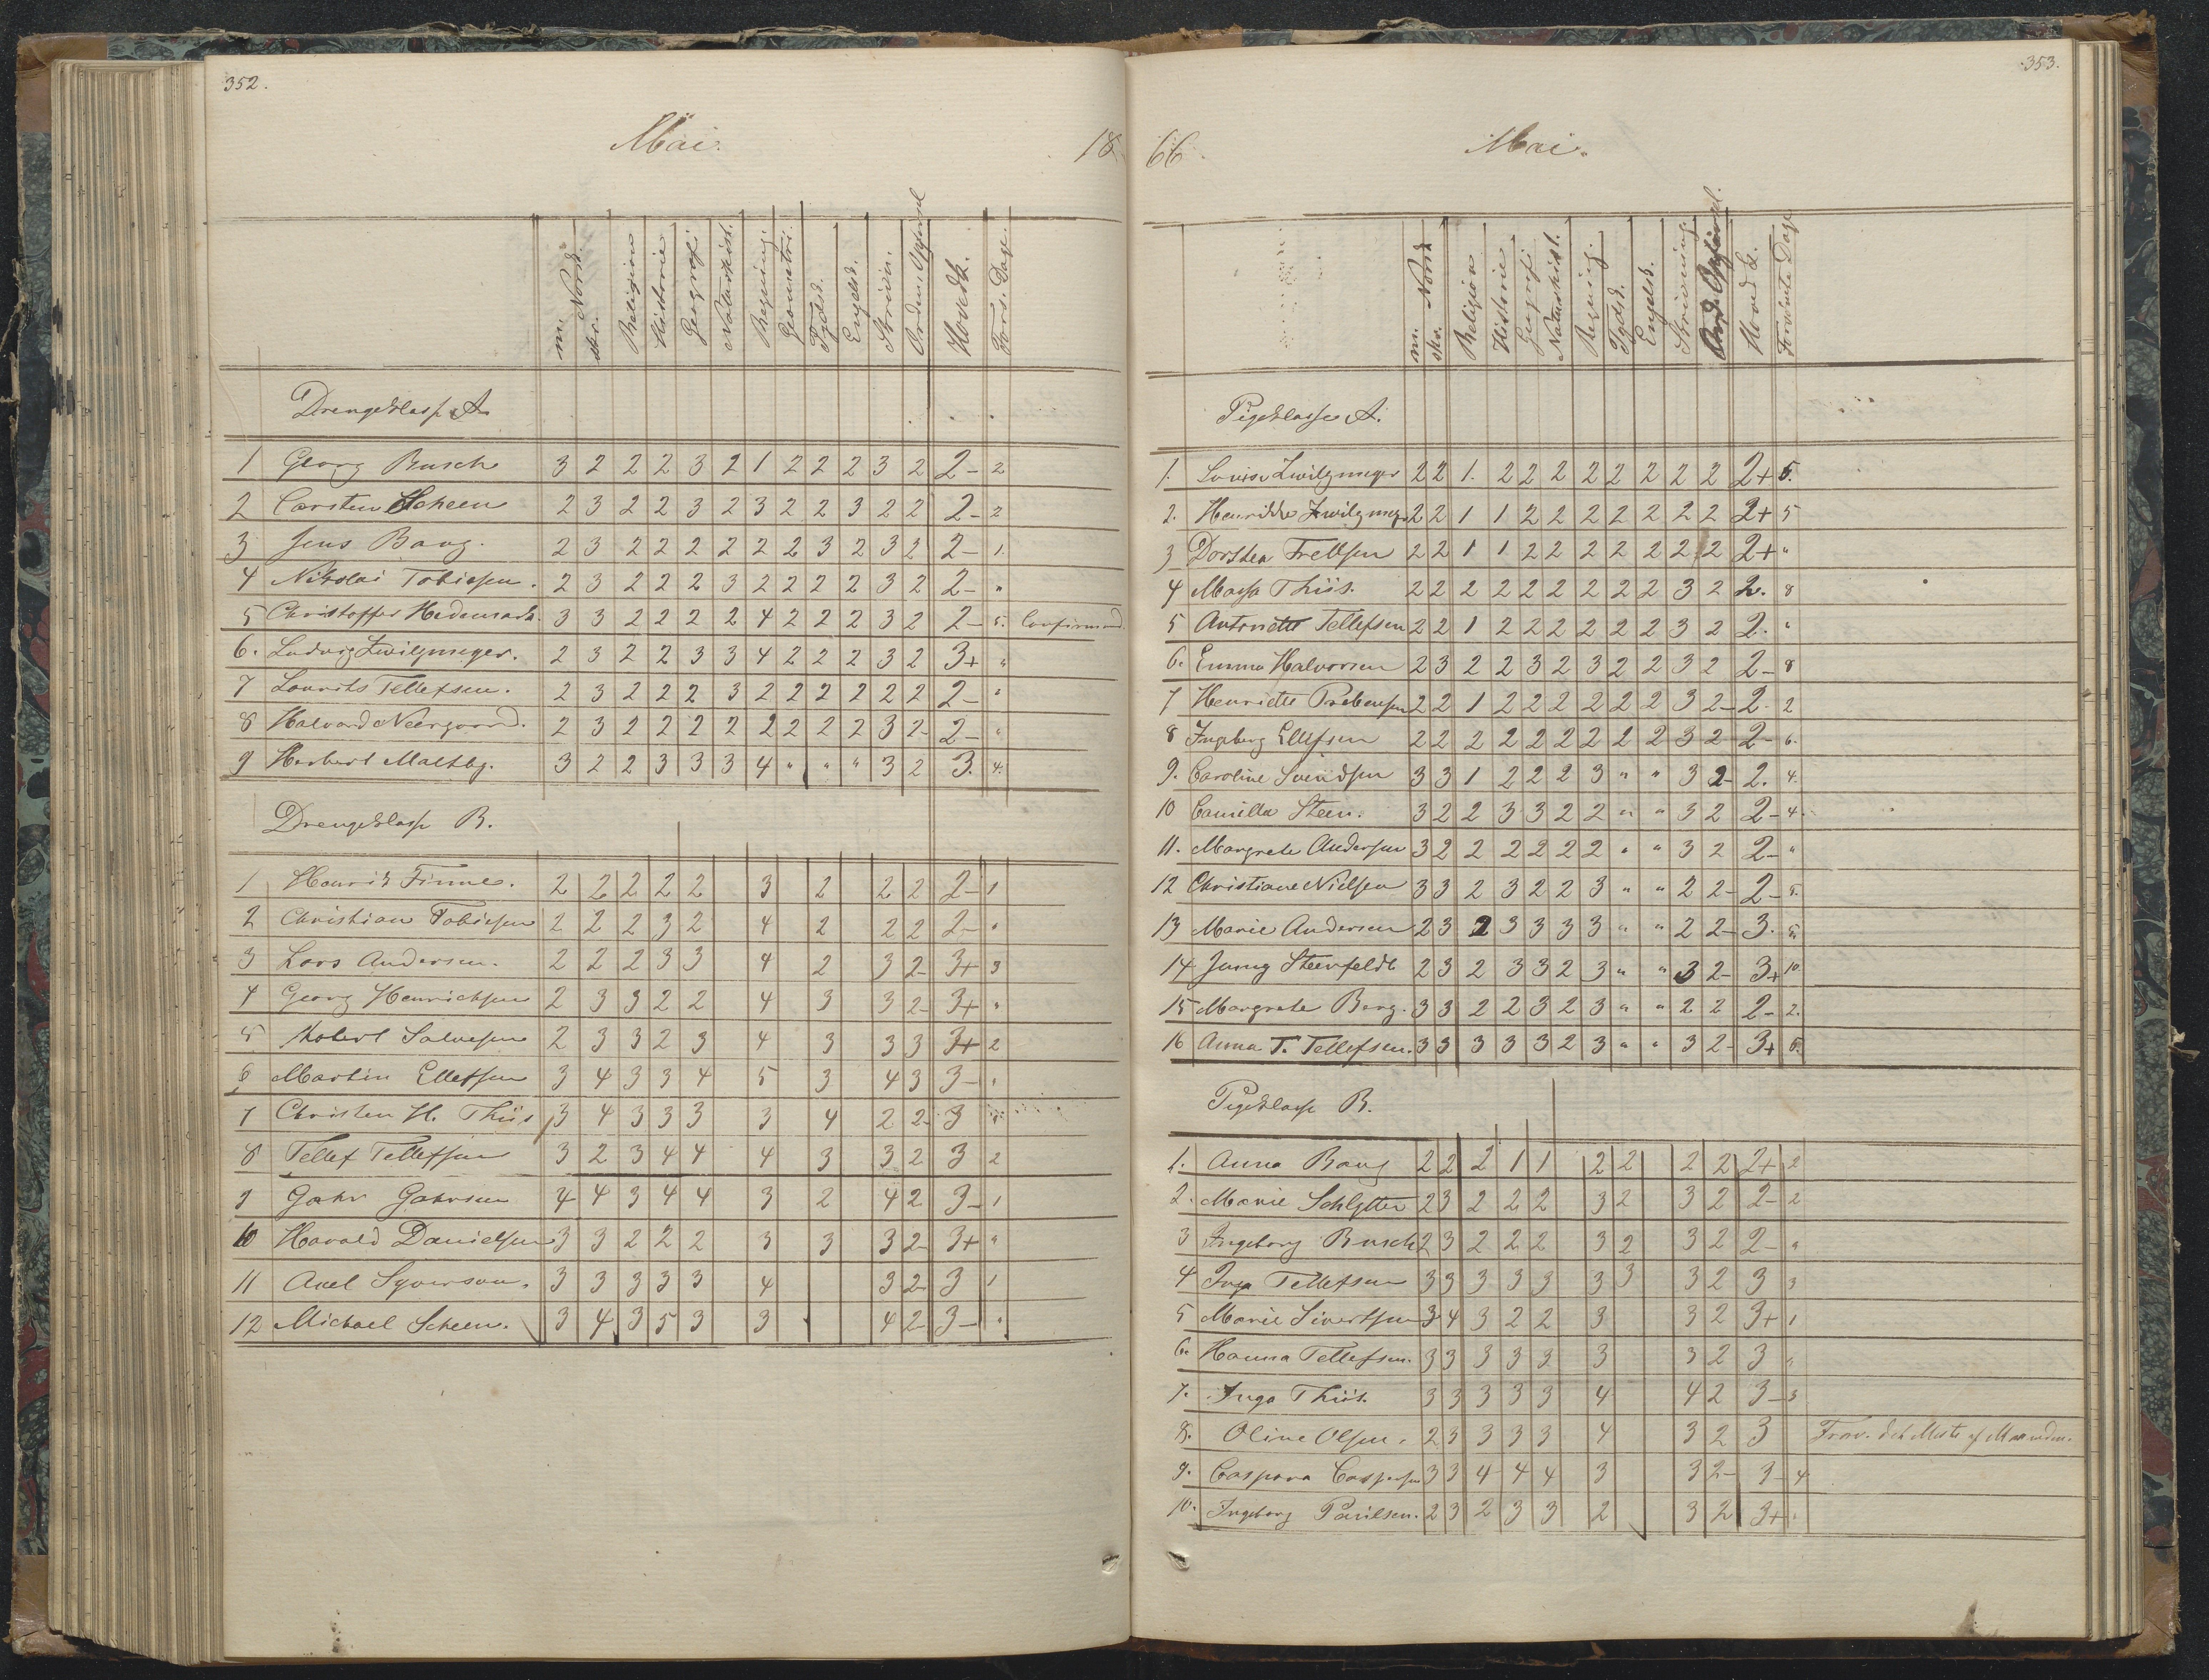 352.
Mai.
18
m. Norsk.
skr.
Religion
Historie
Geografi
Naturhist.
Regning.
Geometri.
Tydsk.
Engelsk.
Skrivn.
Orden. Opførsel
Hovedk.
Fors. Dage.
Drengeklasse A
1 Georg Busch 3 2 2 2 3 2 1 2 2 2 3 2 2- 2
2 Carsten Scheen 2 3 2 2 3 2 3 2 2 3 2 2 2- 2
3 Jens Bang. 2 3 2 2 2 2 2 2 3 2 3 2 2- 1.
4 Nikolai Tobiesen. 2 3 2 2 2 3 2 2 2 2 3 2 2- "
5 Christoffer Hedemark. 3 3 2 2 2 2 4 2 2 2 3 2 2- 5. Confirmand.
6. Ludvig Zwilgmeyer. 2 3 2 2 3 3 4 2 2 2 3 2 3+ "
7 Laurits Tellefsen. 2 3 2 2 2 3 2 2 2 2 2 2 2- "
8 Halvard Neergaard. 2 3 2 2 2 2 2 2 2 2 3 2- 2- "
9 Herbert Maltby. 3 2 2 3 3 3 4 " " " 3 2 3. 4.
Drengeklasse B.
1 Henrik Finne. 2 2 2 2 2 3 2 2 2 2- 1
2 Christian Tobiesen 2 2 2 3 2 4 2 2 2 2- "
3 Lars Andersen. 2 2 2 3 3 4 2 3 2- 3+ 3
4 Georg Henrichsen 2 3 3 2 2 4 3 3 2- 3+ "
5 Robert Salvesen 2 3 3 2 3 4 3 3 3 3+ 2
6 Martin Ellefsen 3 4 3 3 4 5 3 4 3 3- "
7 Christen H. Thiis 3 4 3 3 3 3 4 2 2- 3 "
8 Tellef Tellefsen 3 2 3 4 4 4 3 3 2 3 2
9 Gahr Gahrsen 4 4 3 4 4 3 2 4 2 3- 1
10 Harald Danielsen 3 3 2 2 2 3 3 3 2- 3+ "
11 Axel Syverson. 3 3 3 3 3 4 3 2- 3 1
12 Michael Scheen. 3 4 3 5 3 3 4 2- 3- "
353.
66
Mai.
m. Norsk
skr.
Religion
Historie
Geografi
Naturhist.
Regning.
Tydsk.
Engelsk.
Skrivning
Ord. Opførsel.
Hoved k.
Forsømte Dage
Pigeklasse A.
1. Louise Zwilgmeyer 2 2 1. 2 2 2 2 2 2 2 2 2+ 5.
2. Henrikke Zwilgmeyer 2 2 1 1 2 2 2 2 2 2 2 2+ 5
3 Dorthea Frellsen 2 2 1 1 2 2 2 2 2 2 2 2+ "
4 Maysa Thiis. 2 2 2 2 2 2 2 2 2 3 2 2. 8
5 Antoniette Tellefsen 2 2 1 2 2 2 2 2 2 3 2 2. "
6. Emma Halvorsen 2 3 2 2 3 2 3 2 2 3 2 2- 8
7 Henriette Prebensen 2 2 1 2 2 2 2 2 2 3 2- 2. 2
8 Ingeborg Ellefsen 2 2 2 2 2 2 2 2 2 3 2 2- 6.
9. Caroline Svendsen 3 3 1 2 2 2 3 " " 3 2- 2. 4.
10 Camilla Steen. 3 2 2 3 3 2 2 " " 3 2 2- 4.
11. Margrete Andersen 3 2 2 2 2 2 2 " " 3 2 2- "
12 Christiane Nielsen 3 3 2 3 2 2 3 " " 2 2- 2- 5.
13 Marie Andersen 2 3 2 3 3 3 3 " " 2 2- 3. 5.
14 Jenny Steenfeldt 2 3 2 3 3 2 3 " " 3 2- 3+ 10.
15 Margrete Berg. 3 3 2 2 3 2 3 " " 2 2 2- 2.
16 Anna T. Tellefsen. 3 3 3 3 3 2 3 " " 3 2- 3+ 6.
Pigeklasse B.
1. Anna Bang 2 2 2 1 1 2 2 2 2 2+ 2
2. Marie Schlytter 2 3 2 2 2 3 2 3 2 2- 2
3 Ingeborg Busch 2 3 2 2 2 3 2 3 2 2- "
4 Inga Tellefsen 3 3 3 3 3 3 3 3 2 3 3
5 Marie Sivertsen 3 4 3 2 2 3 3 2 3+ 1
6. Hanna Tellefsen. 3 3 3 3 3 3 3 2 3 "
7. Inga Thiis. 3 3 3 3 3 4 4 2 3- 3
8. Oline Olsen. 2 3 3 3 3 4 3 2 3 Frav. det Meste af Maaneden.
9. Caspara Caspersen 3 3 4 4 4 3 3 2- 3- 4
10. Ingeborg Paulsen. 2 3 2 3 3 2 3 2 3+ "